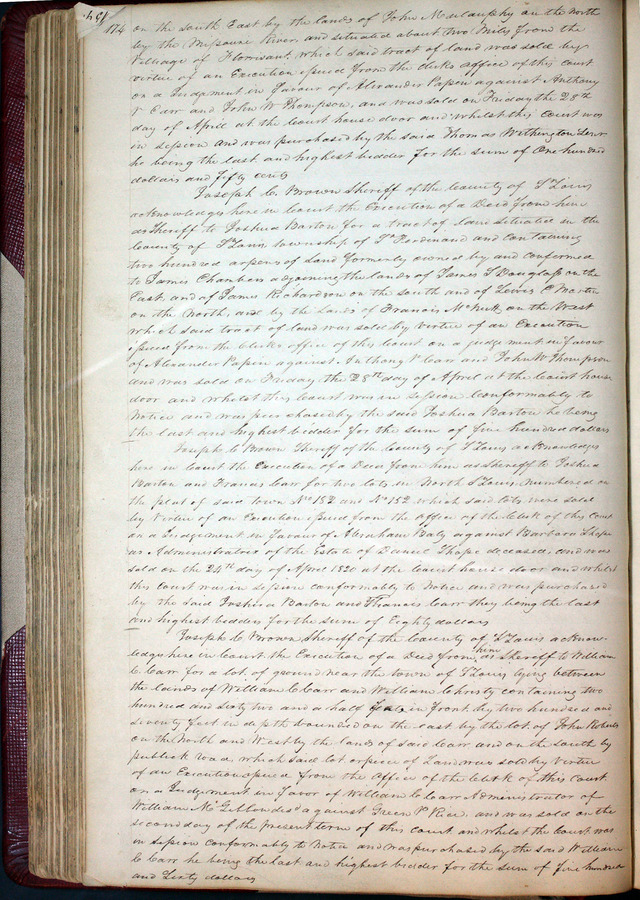 174
on the south East by the lands of John Mulanphy on the North
by the Missouri River and situated about two Miles from the
Village of Florrisant, which said tract of land was sold by
virtue of an Execution issued from the clerks office of this court
on a Judgment in favour of Alexander Papin against Anthony
V Carr and John W Thompson, and was sold on Friday the 28th
day of April at the court house door and whilst this court was
in session and was purchased by the said Thomas Withington Senr
he being the last and highest bidder for the sum of One hundred
dollars and fifty cents
Joseph C. Brown Sheriff of the County of St Louis
acknowledges here in Court the Execution of a Deed from him
as Sheriff to Joshua Barton for a tract of land situated in the
County of St Louis township of St Ferdinand and containing
two hundred arpens of land formerly owned by and confirmed
to James Chambers adjoining the lands of James S Douglass on the
East, and of James Richardson on the south and of Lewis C Martin
on the North, and by the Lands of Francis McNutt, on the West
which said tract of land was sold by Virtue of an Execution
issued from the Clerks office of this Court on a judgement in favour
of Alexander Papin against Anthony V Carr and John W Thompson
and was sold on Friday the 28th day of April at the Court house
door and whilst this Court was in session conformably to
Notice and was purchased by the said Joshua Barton he being
the last and highest bidder for the sum of five hundred dollars
Joseph C Brown Sheriff of the County of St Louis acknowledges
here in Court the Execution of a Deed from him as Sheriff to Joshua
Barton and Francis Carr for two lots in North St Louis, numbered on
the plat of said town No 152 and No 152 which said lots were sold
by Virtue of an Execution issued from the Office of the Clerk of this Court
on a Judgement in favour of Abraham Baty against Barbara
as Administratrix of the Estate of Daniel deceased, and was
sold on the 24th day of April 1820 at the Court house door and whilst
this Court was in session conformably to Notice and was purchased
by the said Joshua Barton and Francis Carr they being the last
and highest bidders for the sum of Eighty dollars
Joseph C Brown Sheriff of the County of St Louis acknow-
ledges here in Court the Execution of a Deed from him as Sheriff to William
C Carr for a lot of ground near the town of St Louis lying between
the lands of William C Carr and William Christy containing two
hundred and sixty two and a half feet in front by two hundred and
seventy feet in depth bounded on the East by the lot of John Roberts
on the North and West by the lands of said Carr and on the South by
publick road which said lot or piece of Land was sold by Virtue
of an Execution issued from the Office of the Clerk of this Court
on a Judgement in favor of William C Carr Administrator of
William against Green P Rice and was sold on the
second day of the present term of this court and whilst the Court was
in session conformably to Notice and was purchased by the said William
C Carr he being the last and highest bidder for the sum of five hundred
and Sixty dollars